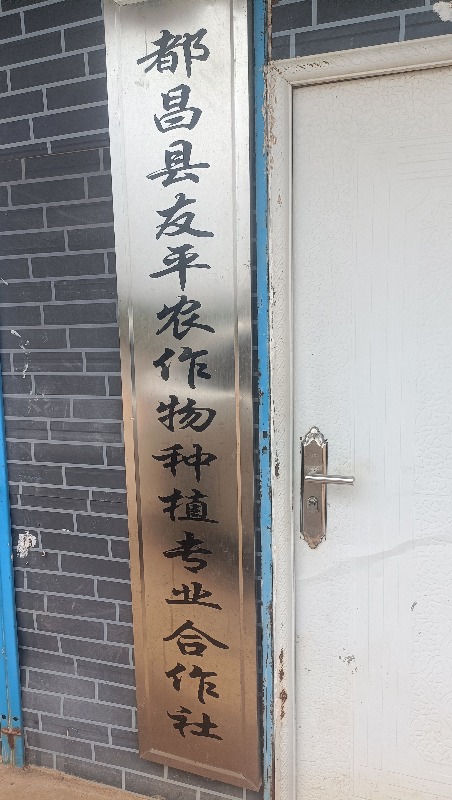 都昌县友平农作物种植专业合作社